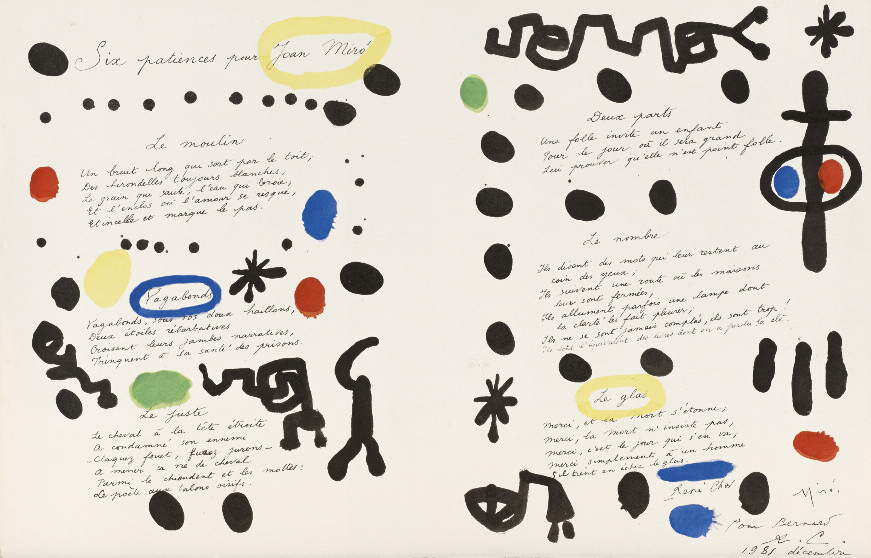 Six patiences pour Joan Miró
Le moulin
Un bruit long qui sort par le toit;
Des hirondelles toujours blanches;
Le grain qui saute, l'eau qui broie;
Et l'enclos où l'amour se risque,
Etincelle et marque le pas.
Vagabonds
Vagabonds, sous vos doux haillons,
Deux étoiles rébarbatives
Croisent leurs jambes narratives,
Trinquent à la santé des prisons.
Le juste
Le cheval à la tête étroite
A condamné son ennemi
- Claquez fouet, fusez jurons -
A mener sa vie de cheval
Parmi le chiendent et les mottes:
Le poète aux talons oisifs.
Deux parts
Une folle invite un enfant
Pour le jour où il sera grand
Lui prouver qu'elle n'est point folle.
Le nombre
Ils disent des mots qui leur restent au
coin des yeux;
Ils suivent une route où les maisons
leur sont fermées;
Ils allument parfois une lampe dont
la clarté les fait pleurer;
Ils ne se sont jamais comptés, ils sont trop!
Ils sont l'équivalent des livres dont on a perdu la clé.
Le glas
Merci, et la Mort s'étonne;
Merci, la Mort n'insiste pas;
Merci, c'est le jour qui s'en va;
Merci simplement à un homme
S'il tient en échec le glas.
René Char
Miró.
Pour Bernard
R. C.
1981 décembre